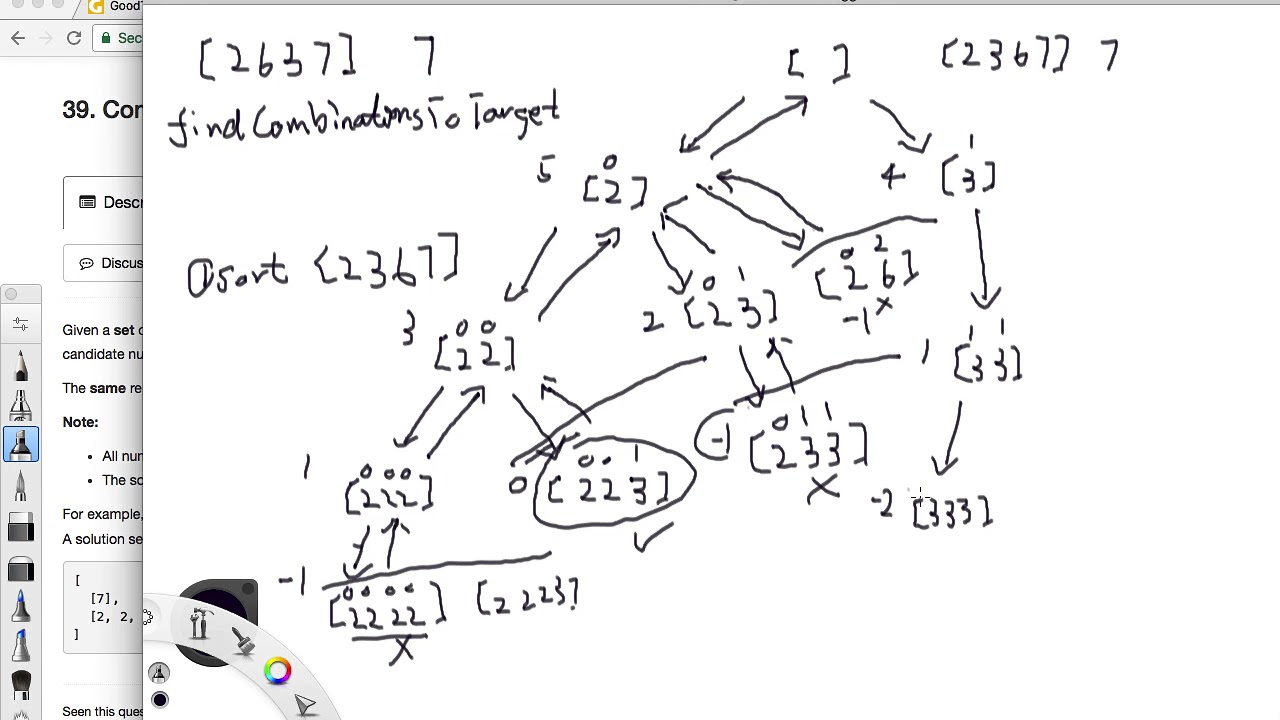 GoodT
Sec
39. Cor
Descr
Discus
Given a set c
candidate nu
The same re
Note:
All nur
The so
For example,
A solution se
[
[7],
[2, 2,
]
Seen this ques
[2 6 3 7] 7
findCombinationsToTarget
① sort {2 3 6 7]
[ ] [2 3 6 7] 7
0
5 [2]
1
4 [3]
0 0
3 [2 2]
0 1
2 [2 3]
0 2
[2 6]
-1 x
1 1
1 [3 3]
0 0 0
1 [2 2 2]
0 0 1
0 [2 2 3]
0 1 1
-1 [2 3 3]
x
-2 [3 3 3]
0 0 0 0
-1 [2 2 2 2] [2 2 2 3]
x